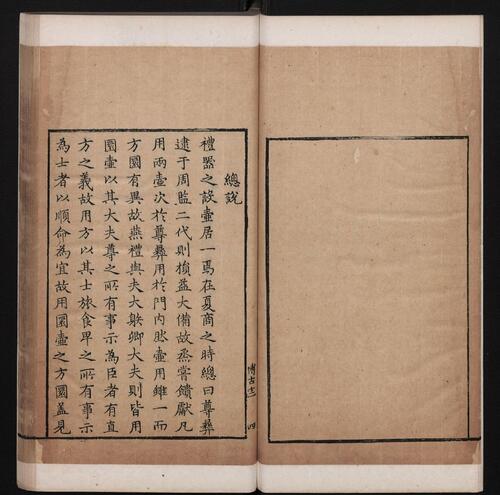 總說
禮器之設壺居一焉在夏商之時總曰尊彝
逮于周監二代則損益大備故烝嘗饋獻凡
用兩壺次於尊彝用於門內然壺用雖一而
方圜有異故燕禮與夫大射卿大夫則皆用
圜壺以其大夫尊之所有事示為臣者有直
方之義故用方以其士旅食卑之所有事示
為士者以順命為宜故用圜壺之方圜蓋見
博古十二
四